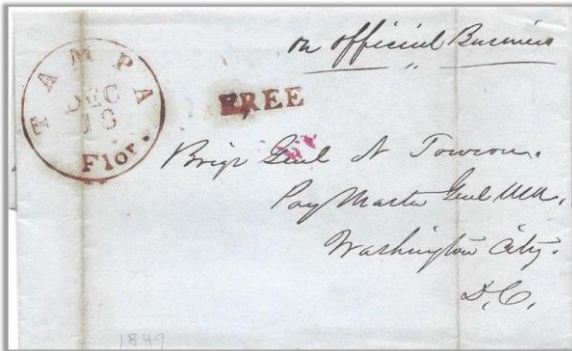 on official Business
TAMPA
DEC
18
Flor.
FREE
Brigr Genl N Towson.
Pay Master Genl USA,
Washington City.
D.C.
1849